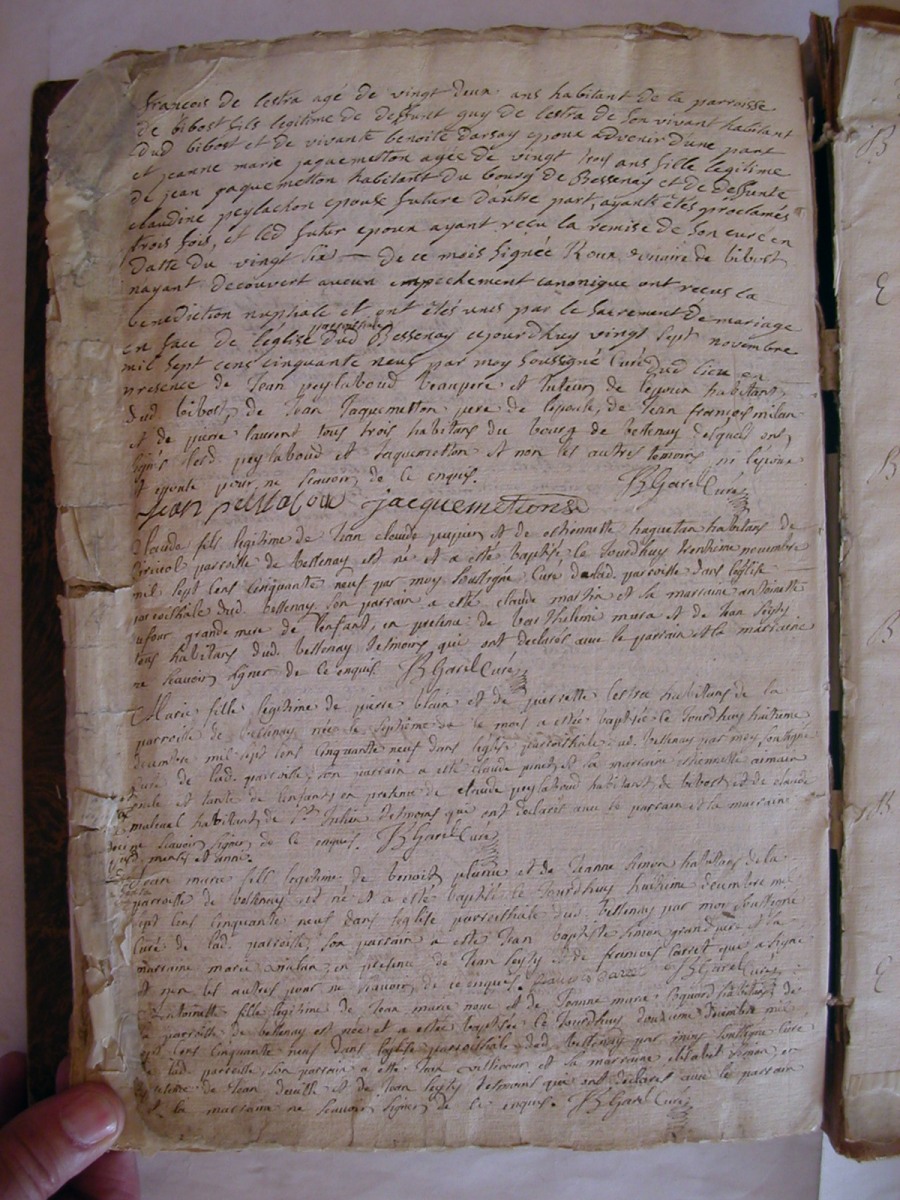 francois de lestra agé de vingt deux ans habitant de la parroisse
de bibost fils legitime de deffunt guy de lestra de son vivant habitant
dud bibost et de vivante benoite darsay epoux advenir d'une part
et jeanne marie jaquemetton agée de vingt trois ans fille legitime
de jean jaquemetton habitant du bourg de Bessenay et de deffunte
claudine peylachon epouse future d'autre part, ayants étés proclamés
trois fois, et led futur epoux ayant recu la remise de son curé en
datte du vingt six de ce mois signée Roux vicaire de bibost
nayant decouvert aucun empechement canonique ont recus la
benediction nuptiale et ont étés unis par le sacrement de mariage
en face de l'église parroissiale dud Bessenay cejourdhuy vingt sept novembre
mil sept cens cinquante neuf par moy soussigné Curé dud lieu en
presence de Jean peylaboud beaupere et tuteur de lepoux habitant
dud bibost, de Jean Jaquemetton pere de lepouse, de Jean françois milan
et de pierre laurent tous trois habitans du bourg de bessenay desquels ont
signés lesd. peylaboud et Jaquemetton et non les autres temoins ni lepoux
et epouse pour ne scavoir, de ce enquis. JB Garel Curé
jean jacquemetton
Claude fils legitime de Jean claude pupier et de ethiennette haquetan habitans de
parroisse de bessenay est né et a esté baptisé ce Jourdhuy trentieme novembre
mil sept cens cinquante neuf par moy soussigné Curé de lad. parroisse dans l'église
parroissiale dud. bessenay, son parrain a esté claude martin et sa marraine antoinette
dufour grande mere de l'enfant, en presence de barthelemi mura et de Jean seyty
tous habitans dud. bessenay temoins qui ont declarés avec le parrain et la marraine
ne scavoir signer de ce enquis. JB Garel Curé
Marie fille legitime de pierre blain et de pierrette lestra habitans de la
parroisse de bessenay née le septieme de ce mois a estée baptisée ce Jourdhuy huitieme
decembre mil sept cens cinquante neuf dans leglise parroissiale dud. bessenay par moy soussigné
Curé de lad. parroisse, son parrain a esté claude pinet et sa marraine ethiennette
oncle et tante de l'enfant, en presence de claude peylaboud habitant de bibost, et de claude
habitant de St. Julien temoins qui ont declarés avec le parrain et la marraine
ne scavoir signer, de ce enquis. JB Garel Curé
Jean marie fils legitime de benoit et de Jeanne Simon habitans de la
parroisse de bessenay est né et a esté baptisé ce Jourdhuy huitieme decembre mil
sept cens cinquante neuf dans leglise parroissiale dud. bessenay par moy soussigné
Curé de lad. parroisse, son parrain a esté Jean baptiste Simon grand pere et la
marraine marie milan, en presence de Jean seyty et de francois carret que a signé
et non les autres pour ne scavoir, de ce enquis. JB Garel Curé
Antoinette fille legitime de Jean marie et de Jeanne marie coquard habitans de
la parroisse de bessenay est née et a estée baptisée ce Jourdhuy douzieme decembre mil
sept cens cinquante neuf dans leglise parroissiale dud. bessenay par moy soussigné curé
de lad. parroisse, son parrain a esté Jean et sa marraine elizabet Simon, en
presence de Jean et de Jean seyty temoins qui ont declarés avec le parrain
et la marraine ne scavoir signer, de ce enquis. JB Garel Curé